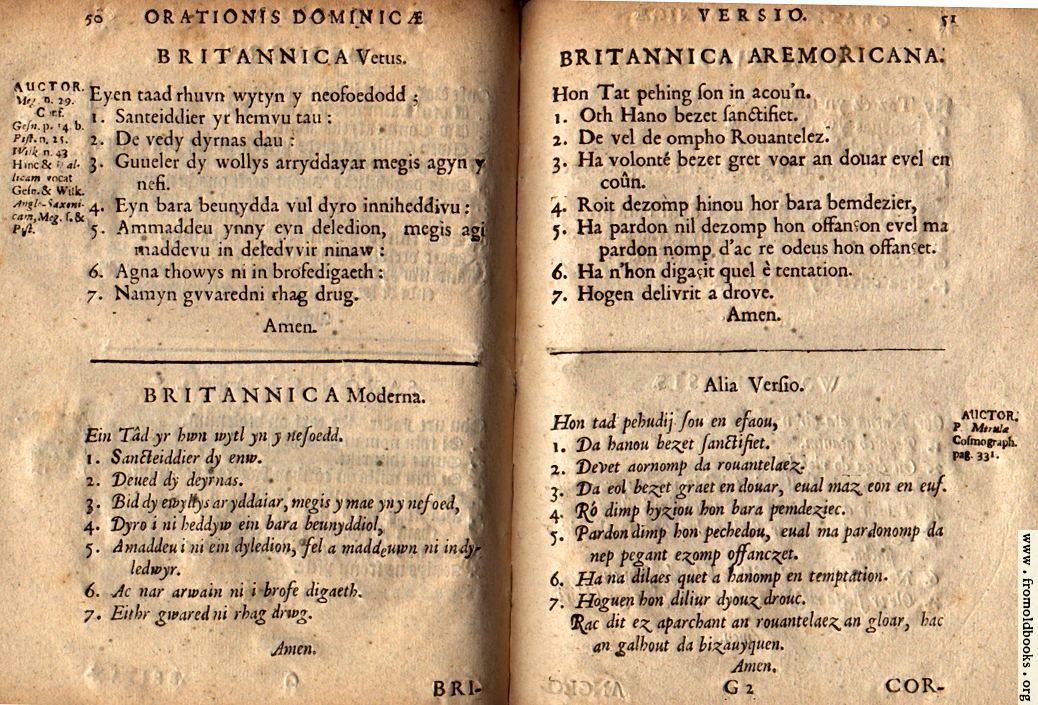 50 ORATIONIS DOMINICÆ
BRITANNICA Vetus.
AUCTOR.
Meg. n. 29.
Gesn. p. 14. b.
Pist. n. 25.
Wilk n. 43
Hinc &
licam vocat
Gesn. & Wilk.
Anglo-Saxoni-
cam, Meg. s. &
Pist.
Eyen taad rhuvn wytyn y neofoedodd ;
1. Santeiddier yr hemvu tau :
2. De vedy dyrnas dau :
3. Guueler dy wollys arryddayar megis agyn y
nefi.
4. Eyn bara beunydda vul dyro inniheddivu :
5. Ammaddeu ynny eyn deledion, megis agi
maddevu in deledvvir ninaw :
6. Agna thowys ni in brofedigaeth :
7. Namyn gvvaredni rhag drug.
Amen.
BRITANNICA Moderna.
Ein Tâd yr hwn wytl yn y nefoedd.
1. Sancteiddier dy enw.
2. Deued dy deyrnas.
3. Bid dy ewyllys ar yddaiar, megis y mae yny nefoed,
4. Dyro i ni heddyw ein bara beunyddiol,
5. Amaddeu i ni ein dyledion, fel a maddeuwn ni indy-
ledwyr.
6. Ac nar arwain ni i brofe digaeth.
7. Eithr gwared ni rhag drwg.
Amen.
BRI-
VERSIO. 51
BRITANNICA AREMORICANA.
Hon Tat pehing ſon in acou'n.
1. Oth Hano bezet ſanctifiet.
2. De vel de ompho Rouantelez.
3. Ha volonté bezet gret voar an douar evel en
coûn.
4. Roit dezomp hinou hor bara bemdezier,
5. Ha pardon nil dezomp hon offanson evel ma
pardon nomp d'ac re odeus hon offanset.
6. Ha n'hon digaçit quel è tentation.
7. Hogen delivrit a drove.
Amen.
Alia Verſio.
Hon tad pehudij ſou en efaou,
1. Da hanou bezet ſanctifiet.
2. Devet aornomp da rouantelaez.
3. Da eol bezet graet en douar, eual maz eon en euf.
4. Ró dimp hyziou hon bara pemdeziec.
5. Pardon dimp hon pechedou, eual ma pardonomp da
nep pegant ezomp offanczet.
6. Ha na dilaes quet a hanomp en temptation.
7. Hoguen hon diliur dyouz drouc.
Rac dit ez aparchant an rouantelaez an gloar, hac
an galhout da bizauyquen.
Amen.
AUCTOR.
P. Merula
Coſmograph.
pag. 331.
G 2 COR-
www.fromoldbooks.org